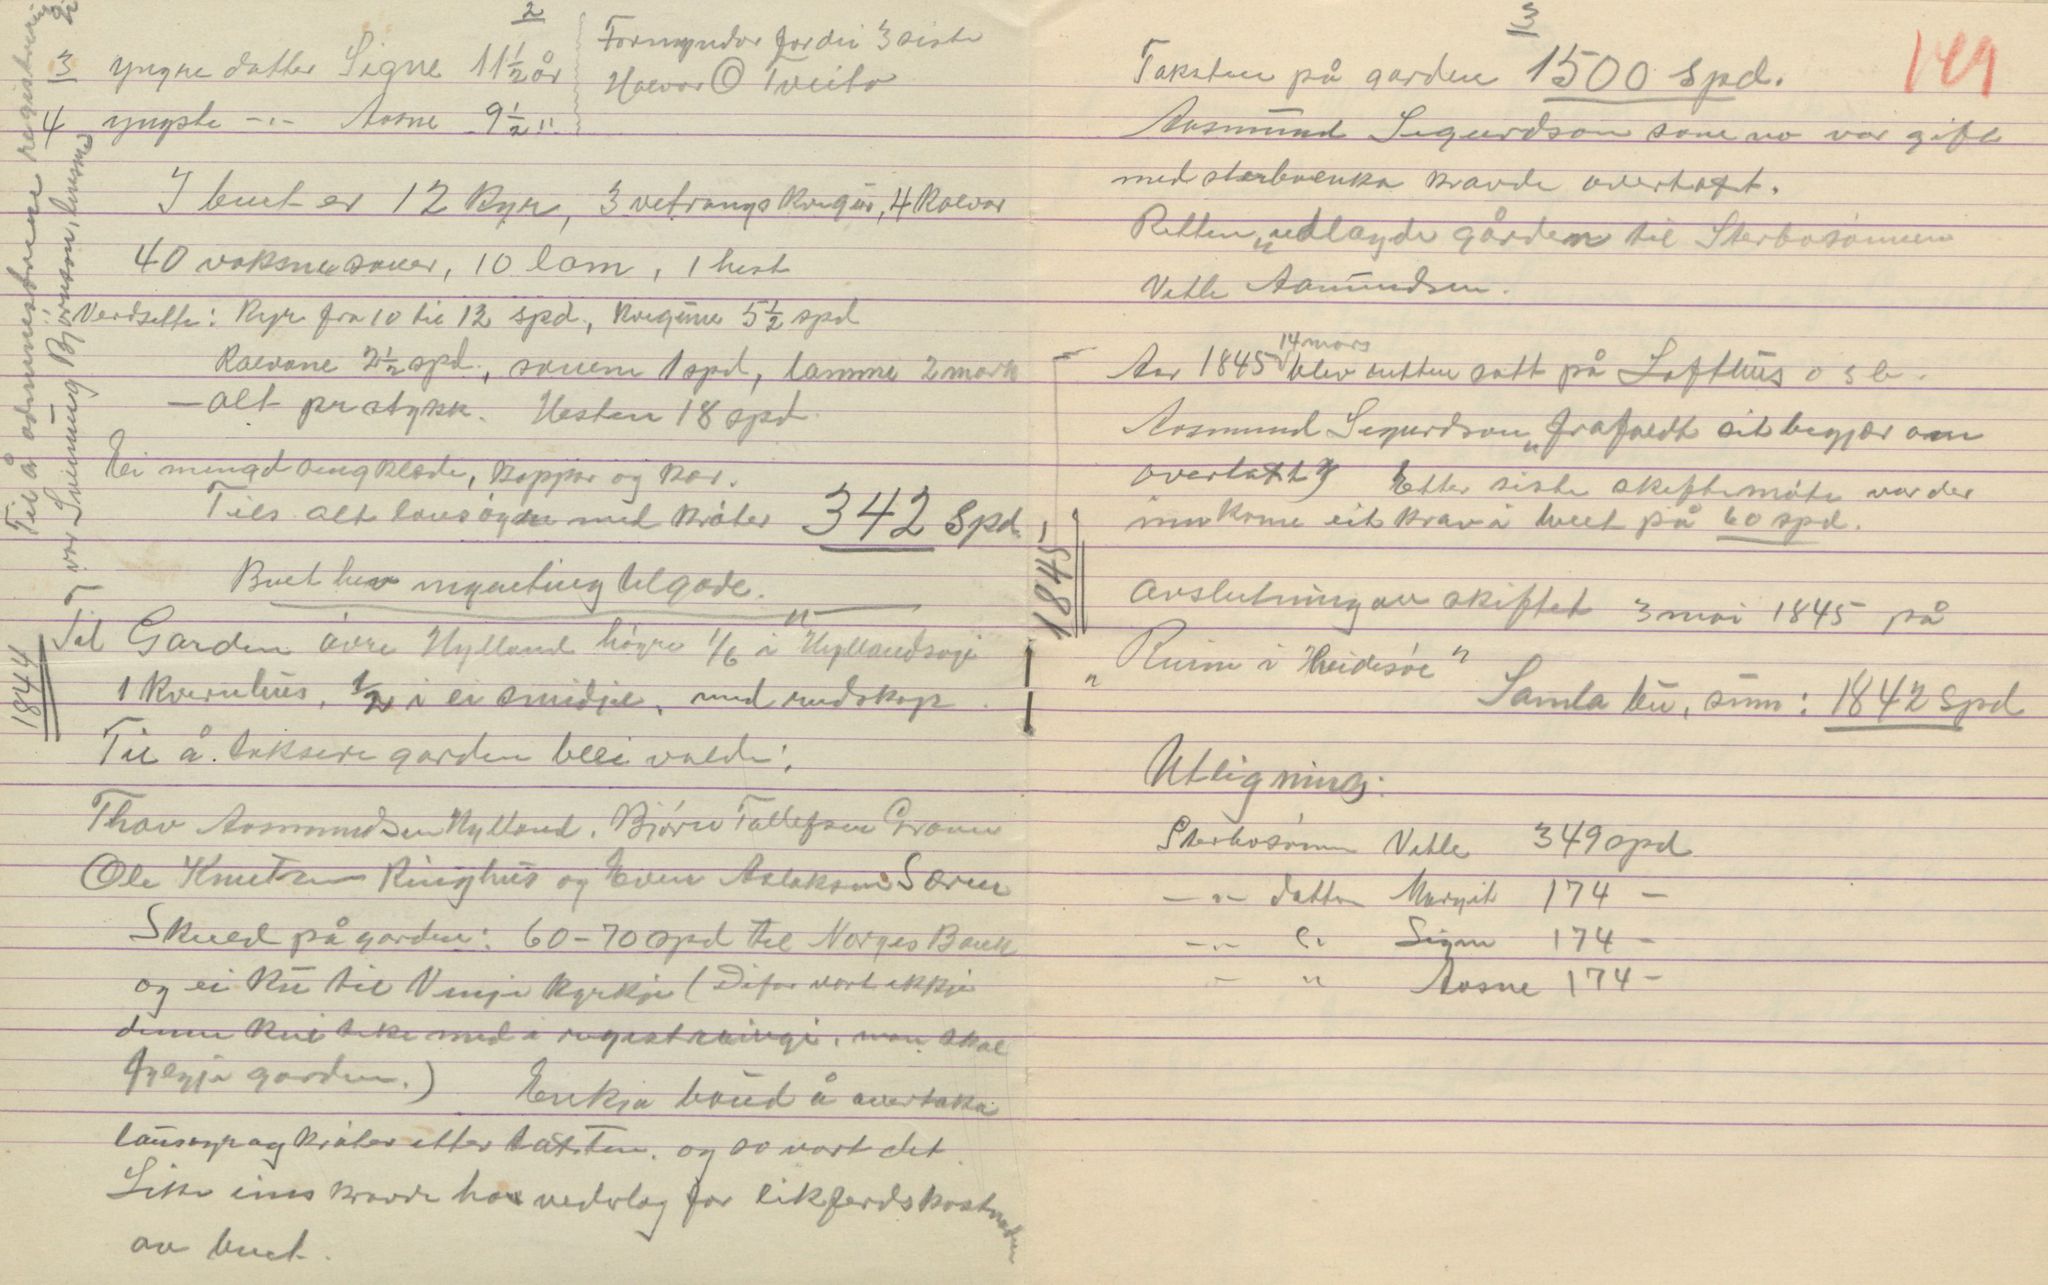 2
3 yngre datter Signe 11½ år
4 yngste -"- Aasne 9½ "
Formyndar for dei 3 siste
Halvor O Tveito
Til å administrere registrering
var Sveinung Bjørnson, lensm.
I buet er 12 kyr, 3 vetrungs kvigur, 4 kalvar
40 vaksne sauer, 10 lam, 1 hest
Verdsette: Kyr fra 10 til 12 spd, kvigune 5½ spd
Kalvane 2½ spd, sauem 1 spd, lamme 2 mark
– alt pr stykk. Hesten 18 spd.
Ei mengd sengklæde, koppar og kar.
Tils alt lausøyre med krøter 342 Spd.
Buet hev ingenting tilgode.
1844
Til Garden øvre Hylland høyre 1/6 i "Hyllandsagi
1 kvernhus, ½ i ei smidje, med reidskap.
Til å taksere garden blei valde:
Thov Aasmundsen Hylland, Bjørn Tallefsen Graver
Ole Knutsen Ringhus og Even Aslaksen Særen
Skuld på garden: 60-70 spd til Norges Bank
og ei ku til Vinje kyrkje (Difor vart ikkje
denne kui teke med i registreringi, man skal
fylgja garden.)
Enkja baud å overtaka
lausøyr og krøter etter taxten, og so vart det.
Like eins kravde ho vederlag for likferdskostnaden
av buet.
3
149
Taksten på garden 1500 Spd.
Aasmund Sigurdson som no var gift
med sterboenka kravde overtaxt.
Retten "udlagde gården til Sterbosønnen
Vetle Aamundsen.
1845
Aar 1845 14 mars blev retten satt på Lofthus o s b.
Aasmund Sigurdson "frafaldt sit begjær om
overtaxt" Etter siste skiftemøte var der
innkome eit krav i buet på 60 spd.
Avslutning av skiftet 3 mai 1845 på
"Ruin i Heidesøe"
Samla bu, sum: 1842 Spd
Utligning:
Sterbosønn Vetle 349 spd
-"- datter Margit 174 –
-"- " Signe 174 –
- " Aasne 174 –